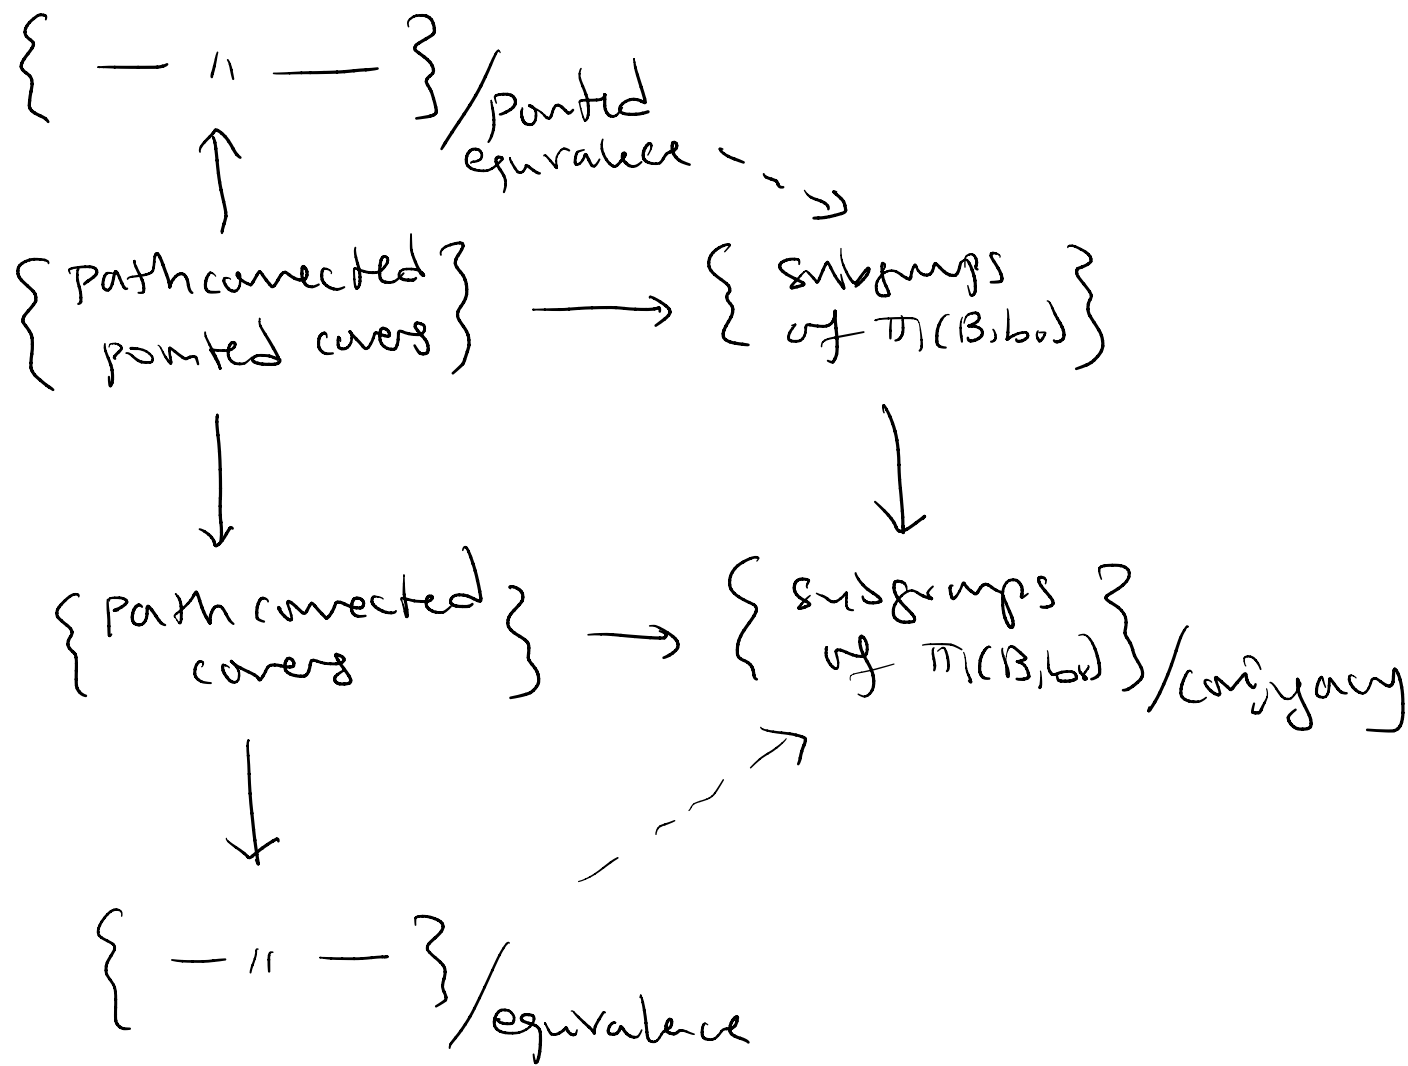 { — " — } / pointed
equivalence
{ path connected
pointed covers }
{ subgroups
of π1(B,b0) }
{ path connected
covers }
{ subgroups
of π1(B,b0) } / conjugacy
{ — " — } / equivalence